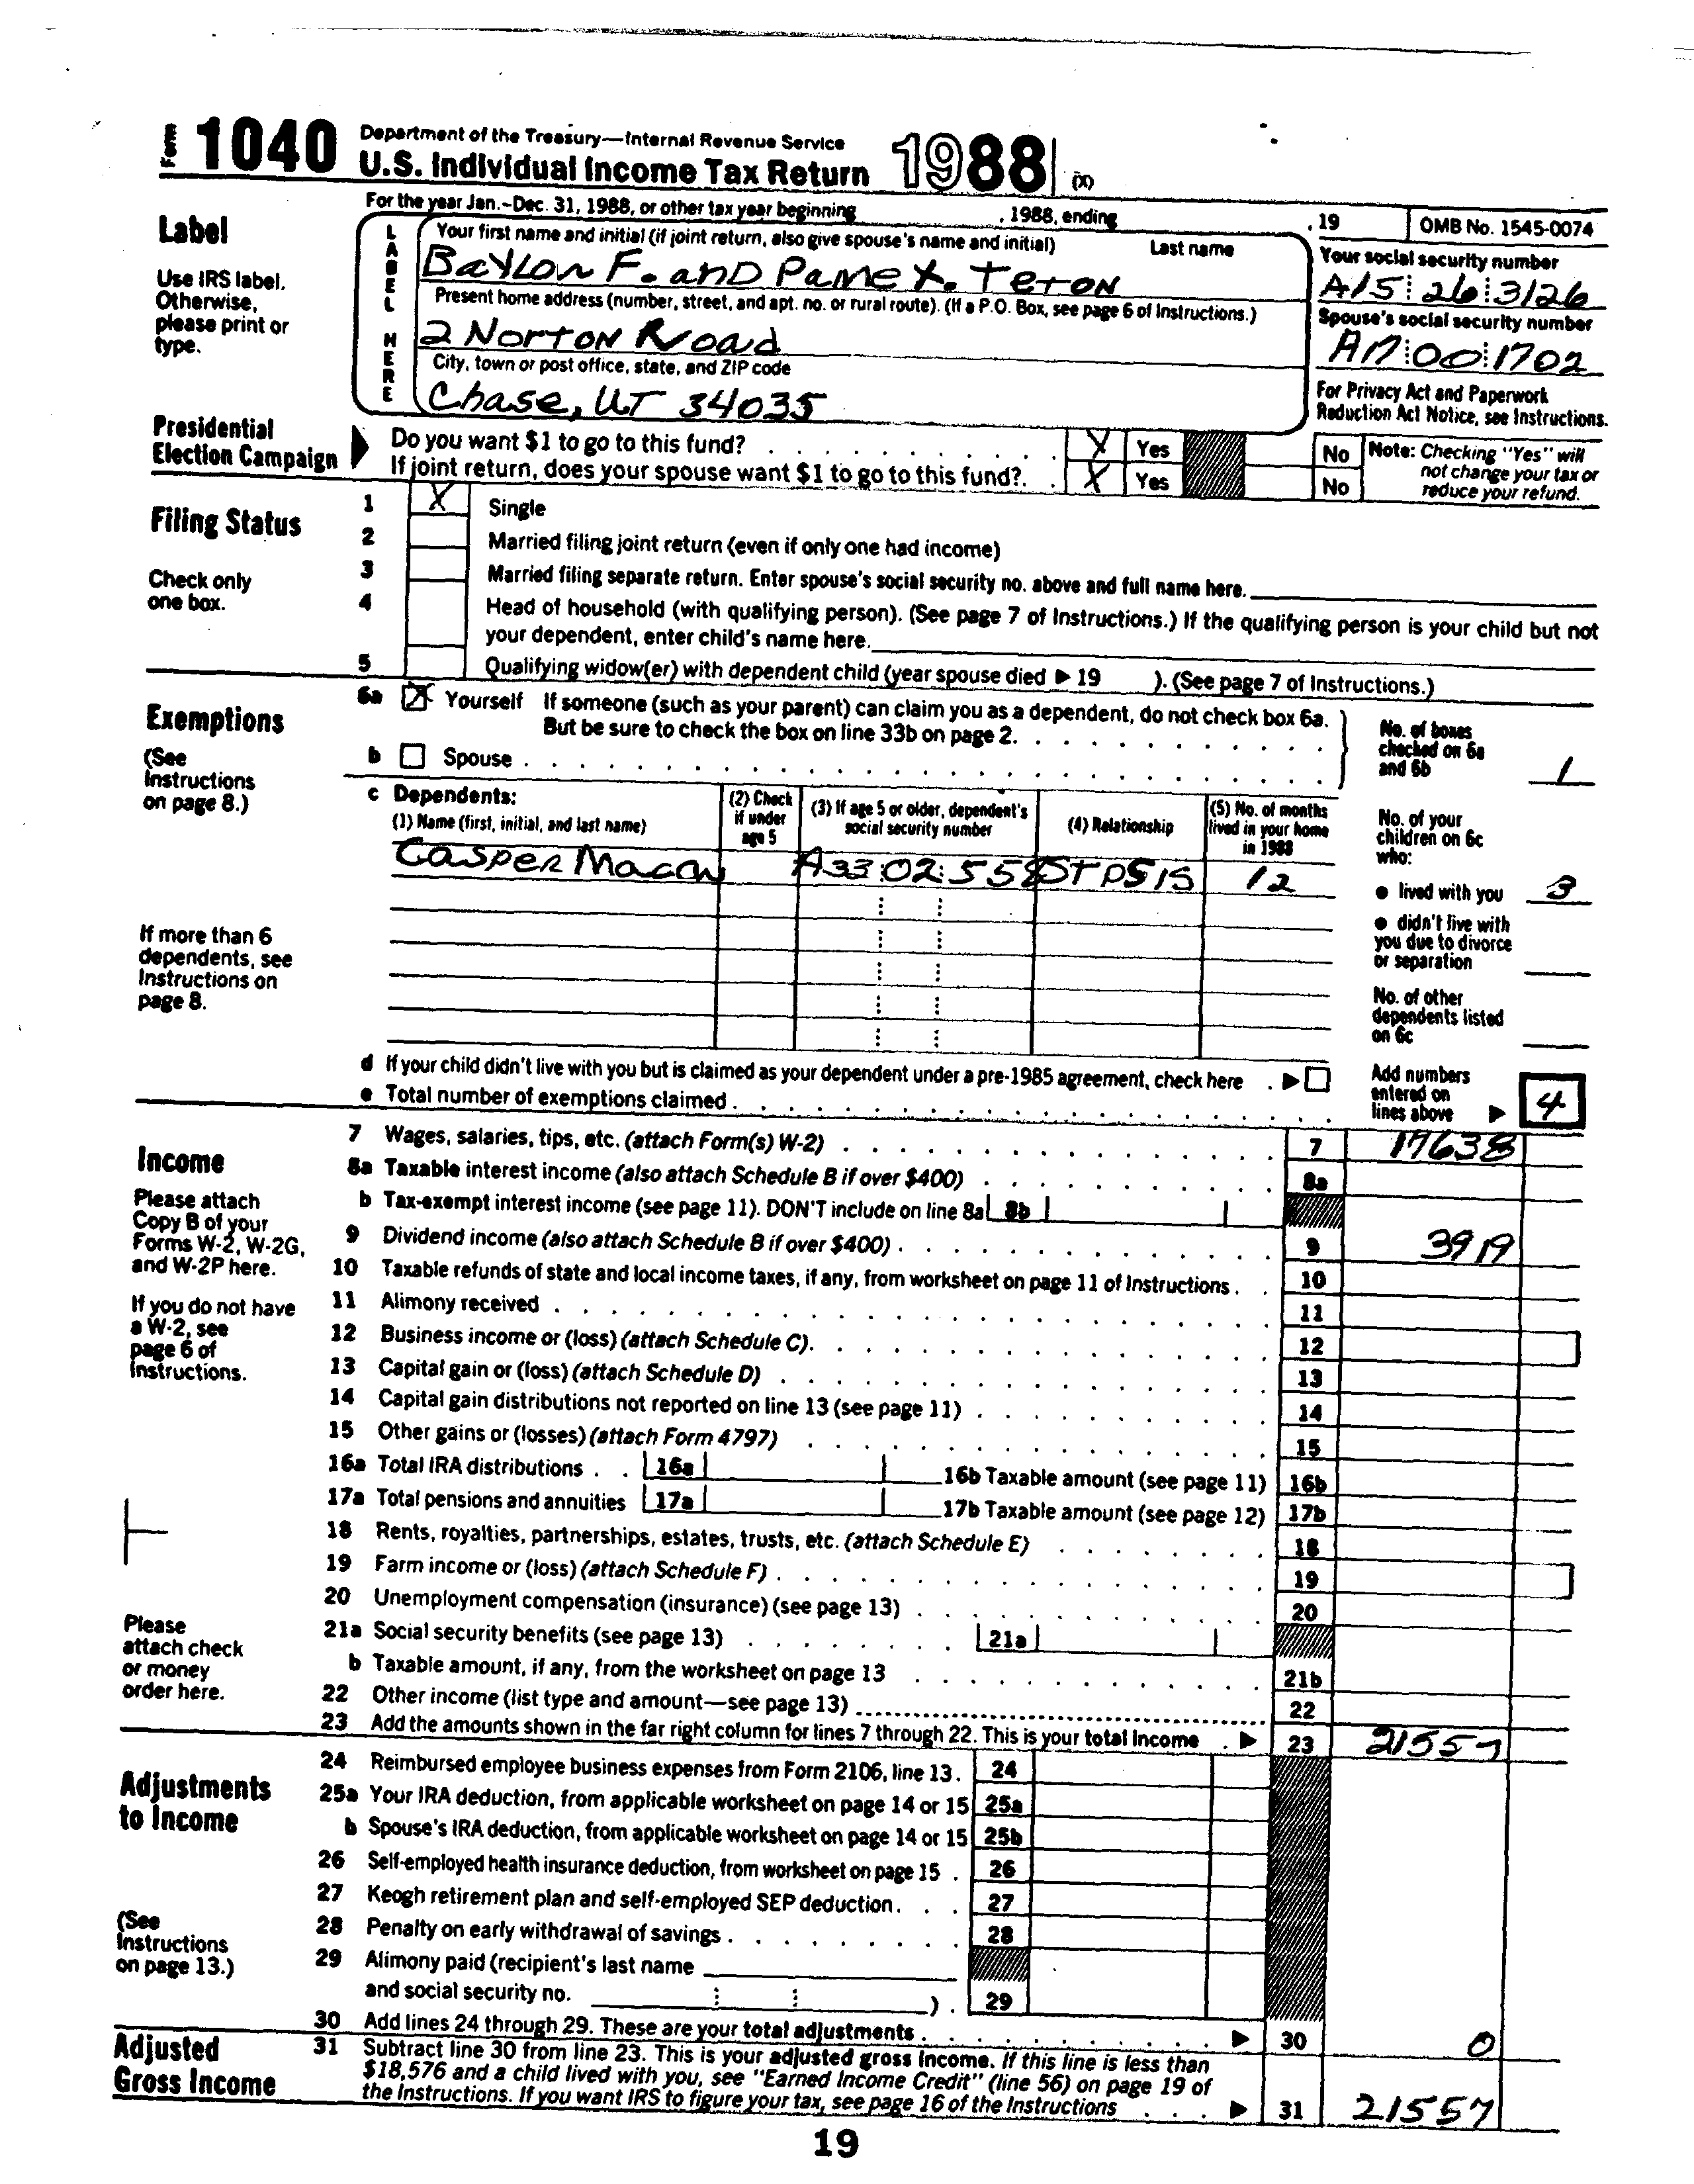 Form 1040 Department of the Treasury—Internal Revenue Service
U.S. Individual Income Tax Return 1988 (X)
For the year Jan.–Dec. 31, 1988, or other tax year beginning , 1988, ending , 19 OMB No. 1545-0074
Label
Use IRS label. Otherwise, please print or type.
LABEL HERE
Your first name and initial (if joint return, also give spouse's name and initial) Last name
Baylon F. and Pame X. Teton
Your social security number
A15 26 3126
Present home address (number, street, and apt. no. or rural route). (If a P.O. Box, see page 6 of Instructions.)
2 Norton Road
Spouse's social security number
A17 00 1702
City, town or post office, state, and ZIP code
Chase, UT 34035
For Privacy Act and Paperwork Reduction Act Notice, see Instructions.
Presidential Election Campaign
Do you want $1 to go to this fund? X Yes No
If joint return, does your spouse want $1 to go to this fund?. X Yes No
Note: Checking "Yes" will not change your tax or reduce your refund.
Filing Status
Check only one box.
1 X Single
2 Married filing joint return (even if only one had income)
3 Married filing separate return. Enter spouse's social security no. above and full name here.
4 Head of household (with qualifying person). (See page 7 of Instructions.) If the qualifying person is your child but not
your dependent, enter child's name here.
5 Qualifying widow(er) with dependent child (year spouse died ▶ 19 ). (See page 7 of Instructions.)
Exemptions
(See Instructions on page 8.)
6a X Yourself If someone (such as your parent) can claim you as a dependent, do not check box 6a.
But be sure to check the box on line 33b on page 2.
b Spouse
No. of boxes checked on 6a and 6b 1
c Dependents:
(1) Name (first, initial, and last name) (2) Check if under age 5 (3) If age 5 or older, dependent's social security number (4) Relationship (5) No. of months lived in your home in 1988
Casper Macon A33 02 558 STPSIS 12
No. of your children on 6c who:
● lived with you 3
● didn't live with you due to divorce or separation
No. of other dependents listed on 6c
If more than 6 dependents, see Instructions on page 8.
d If your child didn't live with you but is claimed as your dependent under a pre-1985 agreement, check here ▶
e Total number of exemptions claimed
Add numbers entered on lines above ▶ 4
Income
Please attach Copy B of your Forms W-2, W-2G, and W-2P here.
If you do not have a W-2, see page 6 of Instructions.
Please attach check or money order here.
7 Wages, salaries, tips, etc. (attach Form(s) W-2) 7 17638
8a Taxable interest income (also attach Schedule B if over $400) 8a
b Tax-exempt interest income (see page 11). DON'T include on line 8a 8b
9 Dividend income (also attach Schedule B if over $400) 9 3919
10 Taxable refunds of state and local income taxes, if any, from worksheet on page 11 of Instructions 10
11 Alimony received 11
12 Business income or (loss) (attach Schedule C). 12
13 Capital gain or (loss) (attach Schedule D) 13
14 Capital gain distributions not reported on line 13 (see page 11) 14
15 Other gains or (losses) (attach Form 4797) 15
16a Total IRA distributions 16a 16b Taxable amount (see page 11) 16b
17a Total pensions and annuities 17a 17b Taxable amount (see page 12) 17b
18 Rents, royalties, partnerships, estates, trusts, etc. (attach Schedule E) 18
19 Farm income or (loss) (attach Schedule F) 19
20 Unemployment compensation (insurance) (see page 13) 20
21a Social security benefits (see page 13) 21a
b Taxable amount, if any, from the worksheet on page 13 21b
22 Other income (list type and amount—see page 13) 22
23 Add the amounts shown in the far right column for lines 7 through 22. This is your total income ▶ 23 21557
Adjustments to Income
(See Instructions on page 13.)
24 Reimbursed employee business expenses from Form 2106, line 13. 24
25a Your IRA deduction, from applicable worksheet on page 14 or 15 25a
b Spouse's IRA deduction, from applicable worksheet on page 14 or 15 25b
26 Self-employed health insurance deduction, from worksheet on page 15 26
27 Keogh retirement plan and self-employed SEP deduction 27
28 Penalty on early withdrawal of savings 28
29 Alimony paid (recipient's last name
and social security no. ) 29
30 Add lines 24 through 29. These are your total adjustments ▶ 30 0
Adjusted Gross Income
31 Subtract line 30 from line 23. This is your adjusted gross income. If this line is less than
$18,576 and a child lived with you, see "Earned Income Credit" (line 56) on page 19 of
the Instructions. If you want IRS to figure your tax, see page 16 of the Instructions ▶ 31 21557
19